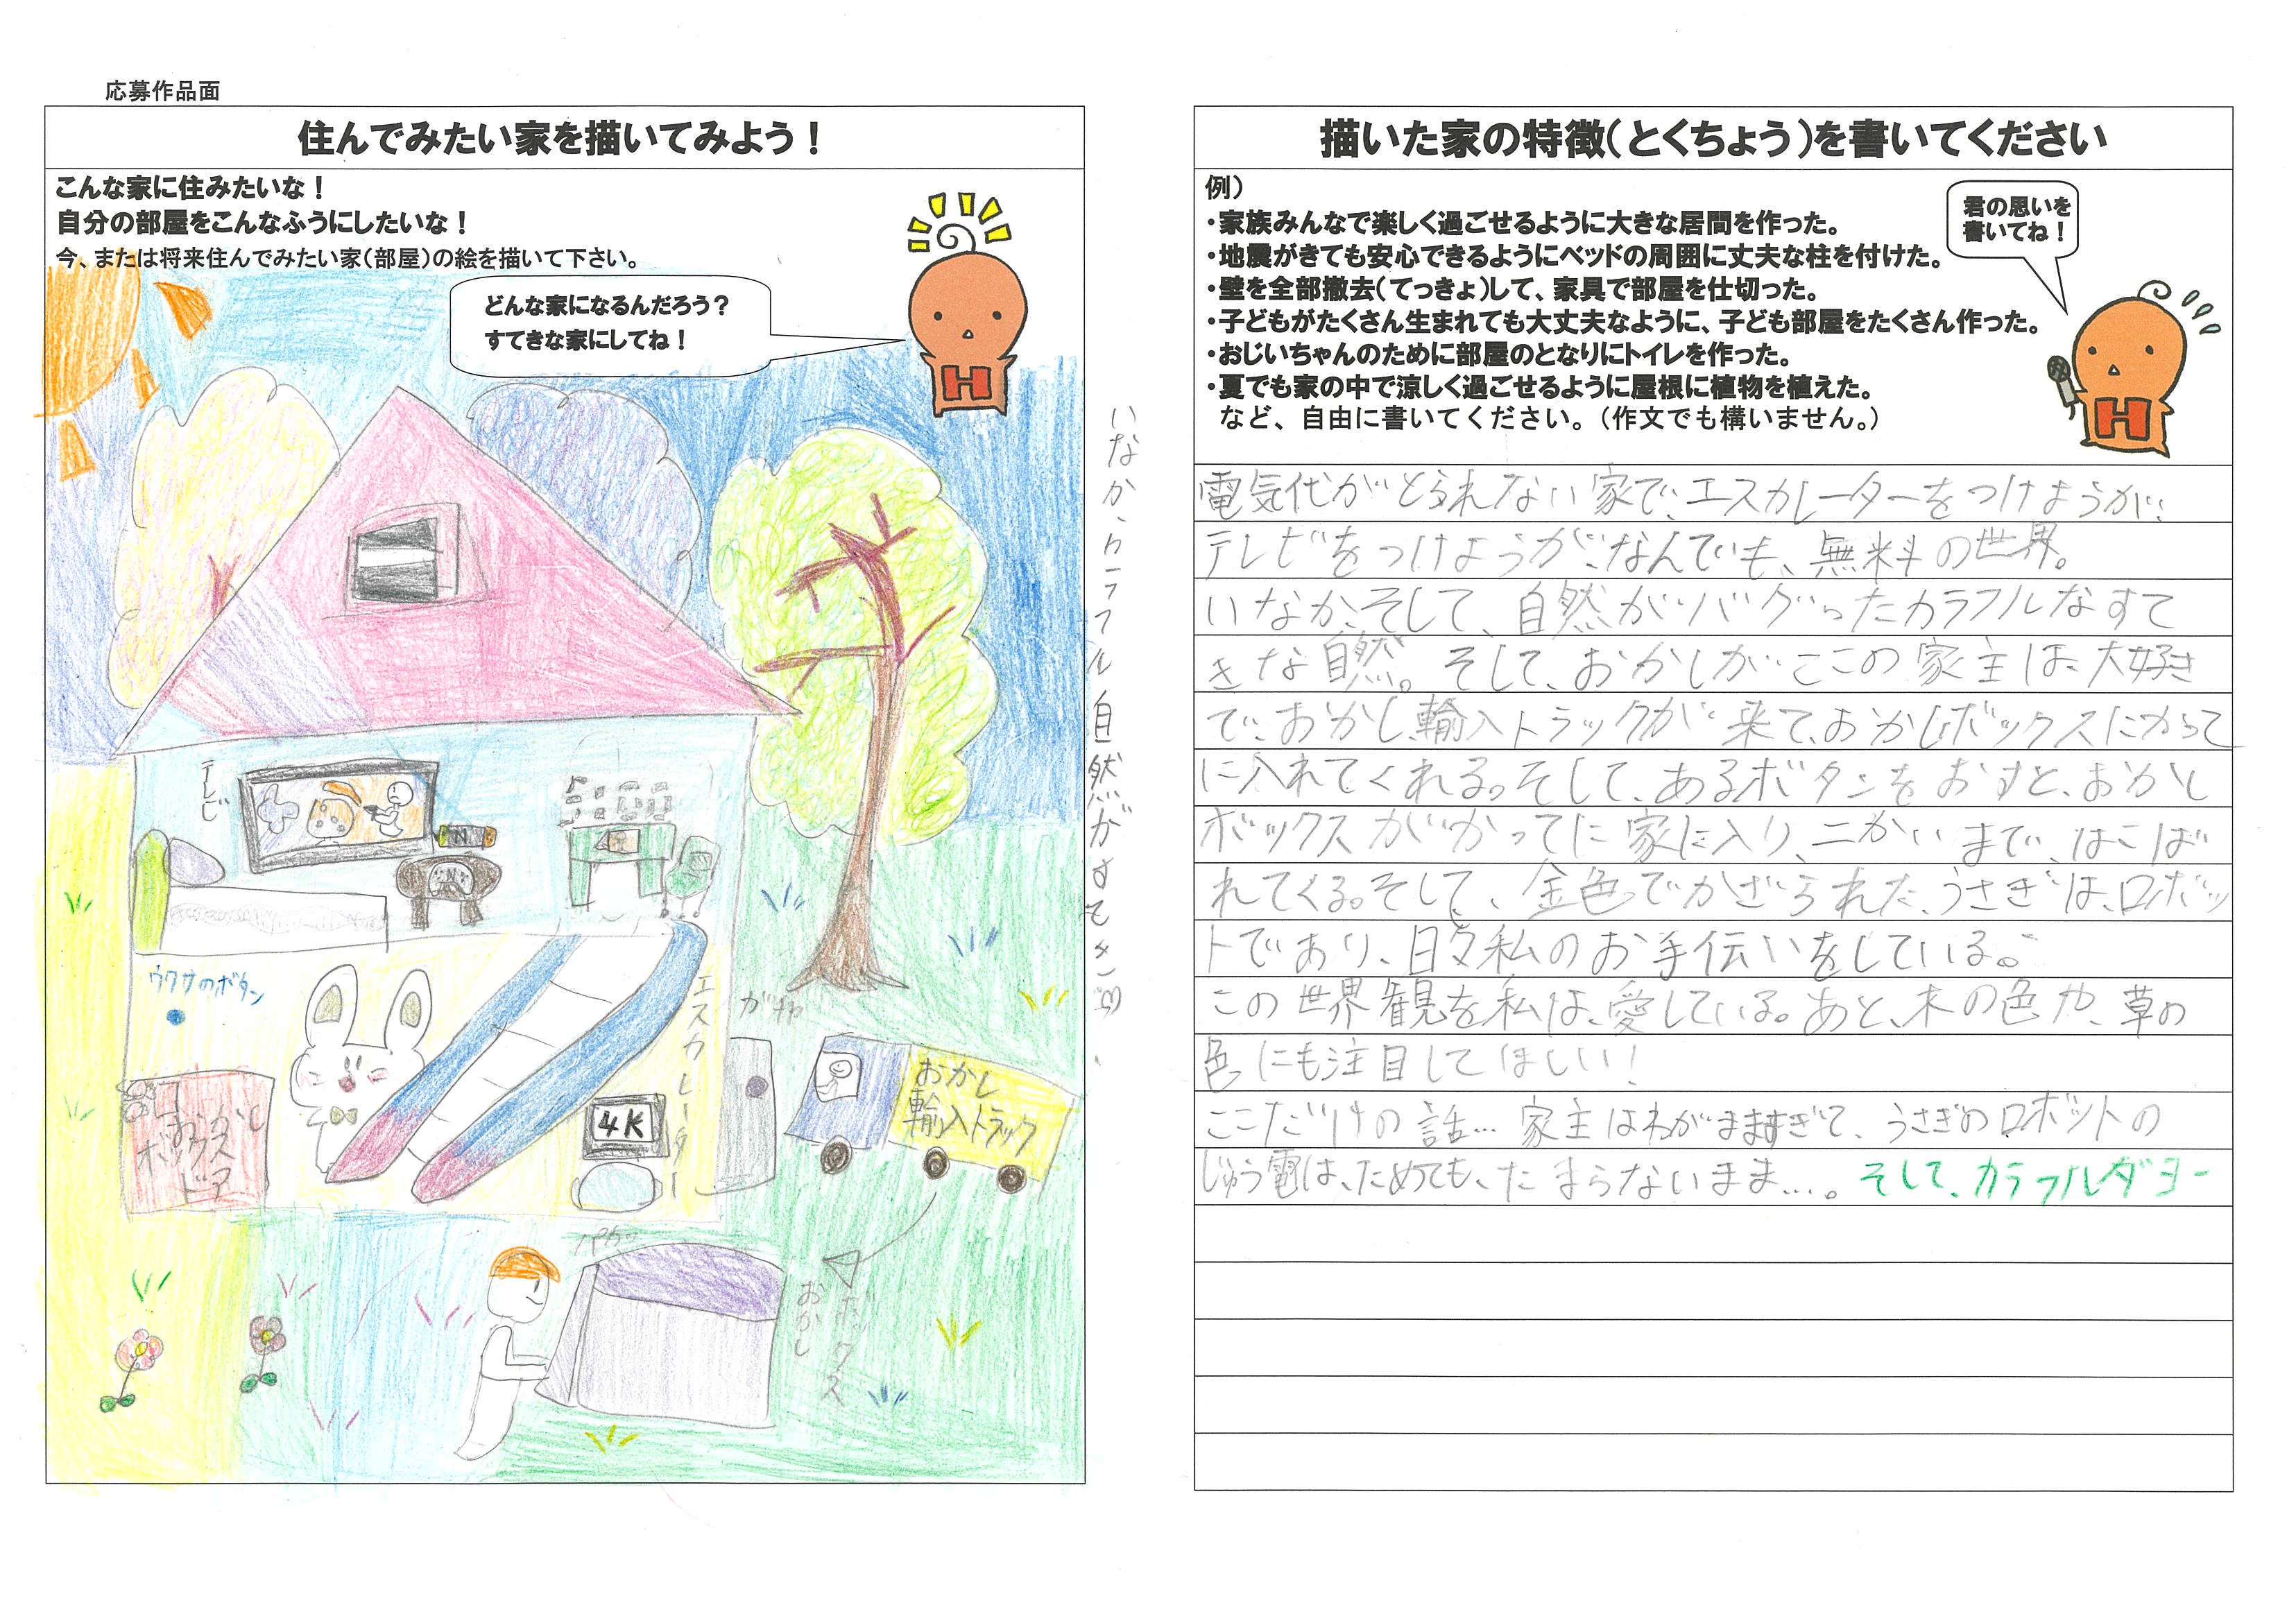 応募作品面
住んでみたい家を描いてみよう！
こんな家に住みたいな！
自分の部屋をこんなふうにしたいな！
今、または将来住んでみたい家（部屋）の絵を描いて下さい。
どんな家になるんだろう？
すてきな家にしてね！
H
いなか、カラフル自然がすてき
テレビ
N
エスカレーター
4K
おかし
輸入トラック
おかし
ボックス
ドア
おかし
ボックス
描いた家の特徴（とくちょう）を書いてください
例）
・家族みんなで楽しく過ごせるように大きな居間を作った。
・地震がきても安心できるようにベッドの周囲に丈夫な柱を付けた。
・壁を全部撤去（てっきょ）して、家具で部屋を仕切った。
・子どもがたくさん生まれても大丈夫なように、子ども部屋をたくさん作った。
・おじいちゃんのために部屋のとなりにトイレを作った。
・夏でも家の中で涼しく過ごせるように屋根に植物を植えた。
など、自由に書いてください。（作文でも構いません。）
君の思いを
書いてね！
H
電気代がとられない家で、エスカレーターをつけようが、
テレビをつけようが、なんでも、無料の世界。
いなか、そして、自然がバグったカラフルなすて
きな自然。そして、おかしがここの家主は、大好き
で、おかし輸入トラックが来て、おかしボックスにかって
に入れてくれる。そして、あるボタンをおすと、おかし
ボックスがかってに家に入り、二かいまで、はこば
れてくる。そして、金色でかざられた、うさぎは、ロボッ
トであり、日々私のお手伝いをしている。
この世界観を私は、愛している。あと、木の色や、草の
色にも注目してほしい！
ここだけの話…家主はわがまますぎて、うさぎのロボットの
じゅう電は、ためても、たまらないまま…。そして、カラフルダヨー